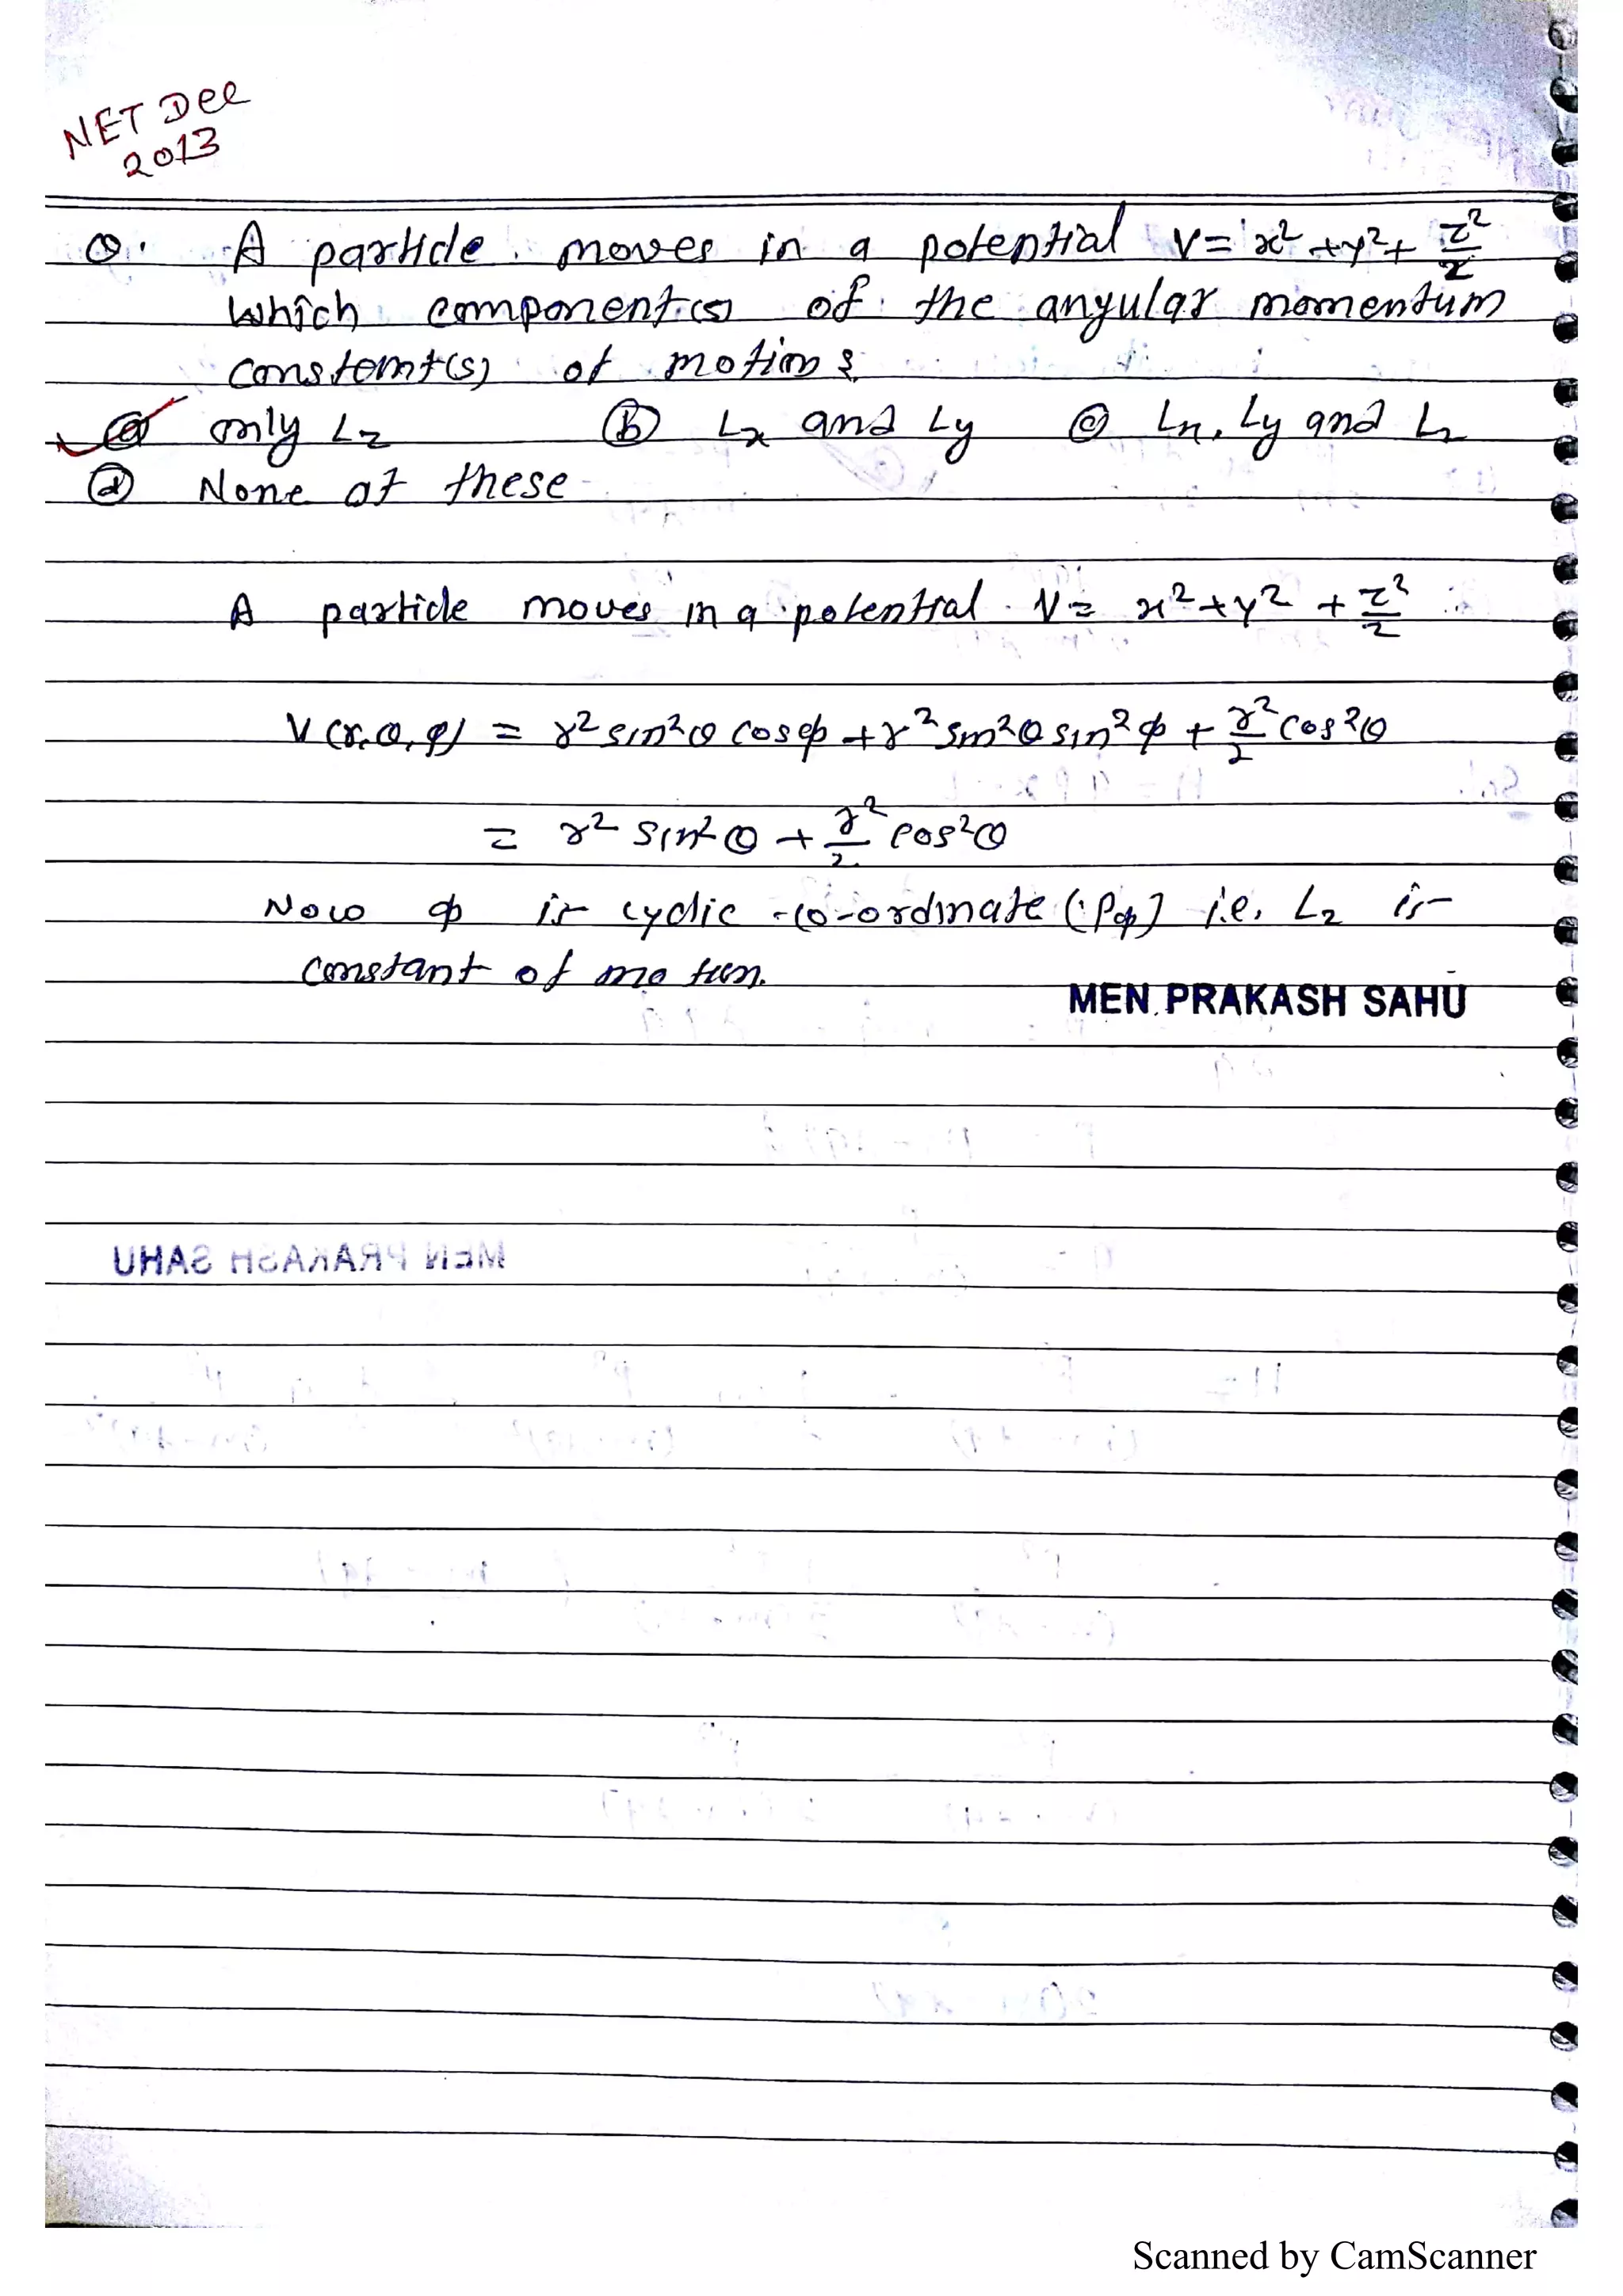 NET Dec
2013
Q. A particle moves in a potential V = x² + y² + z²/2
Which component(s) of the angular momentum
constant(s) of motion ?
(a) only Lz (b) Lx and Ly (c) Lx, Ly and Lz
(d) None of these
A particle moves in a potential V = x² + y² + z²/2
V(r, θ, φ) = r² sin²θ cosφ + r² sin²θ sin²φ + r²/2 cos²θ
= r² sin²θ + r²/2 cos²θ
Now φ is cyclic co-ordinate (Pφ) i.e. Lz is
constant of motion.
MEN PRAKASH SAHU
MEN PRAKASH SAHU
Scanned by CamScanner